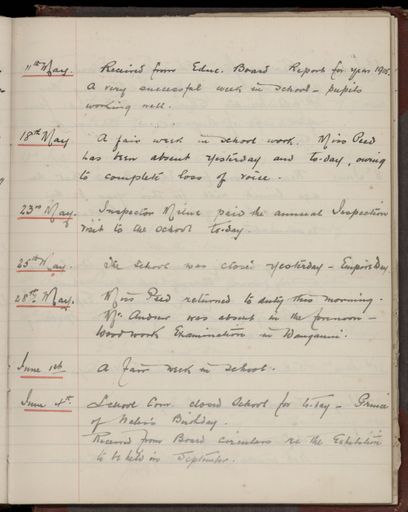 11th May. Received from Educ. Board Report for year 1905.
A very successful week in School – pupils
working well.
18th May A fair week in school work. Miss Peed
has been absent yesterday and to-day, owing
to complete loss of voice.
23rd May. Inspector Milne paid the annual Inspection
visit to the school to-day.
25th May. The School was closed yesterday – Empire Day.
28th May. Miss Peed returned to duty this morning.
Mr. Andrew was absent in the forenoon –
Woodwork Examination in Wanganui.
June 1st A fair week in school.
June 4th School Com. closed School for to-day – Prince
of Wales's Birthday.
Received from Board circulars re the Exhibition
to be held in September.